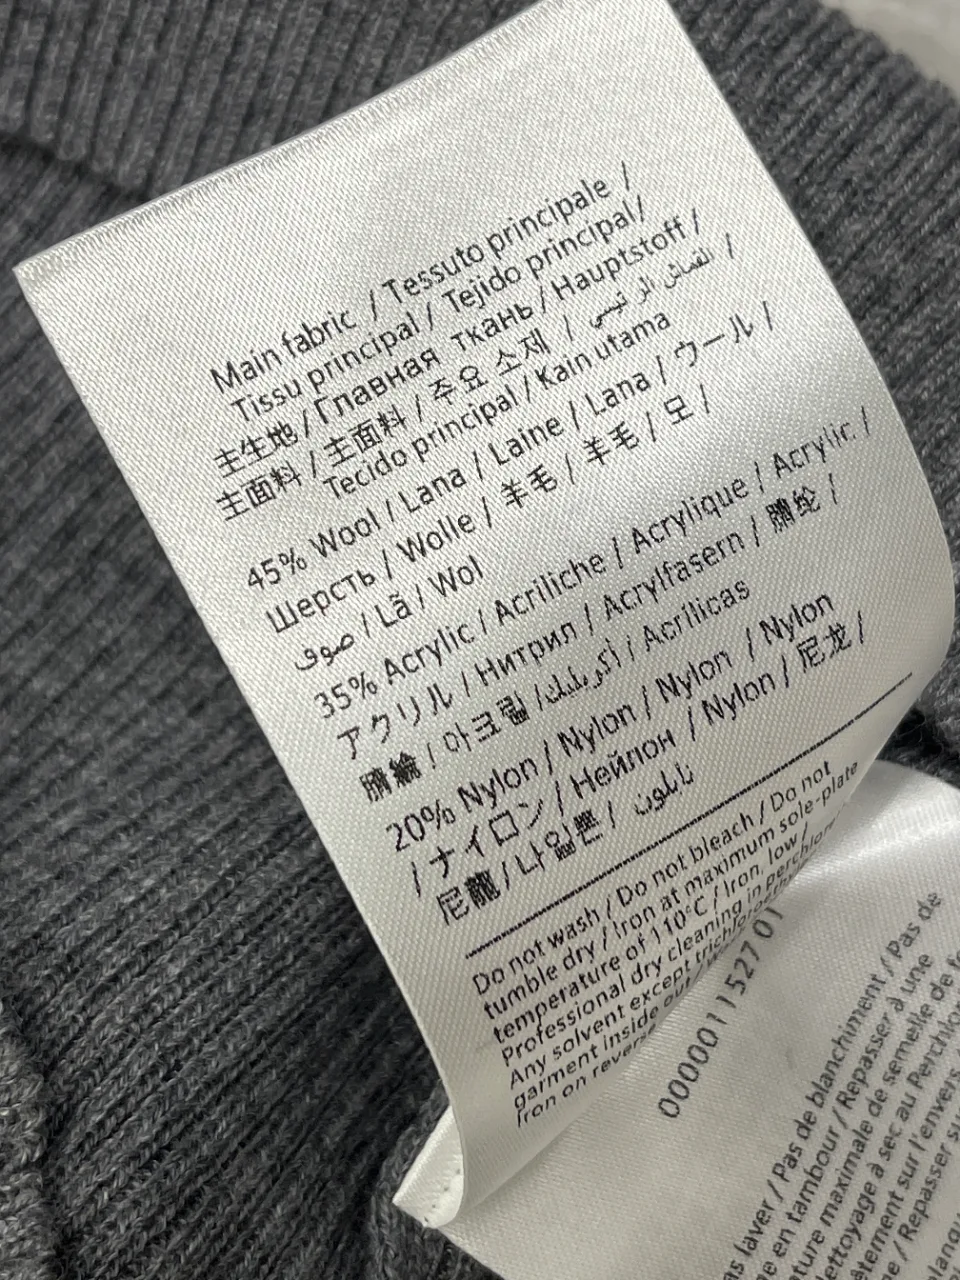 Main fabric / Tessuto principale /
Tissu principal / Tejido principal/
主生地 / Главная ткань / Hauptstoff /
主面料 / 主面料 / 주요 소재 / القماش الرئيسي /
Tecido principal / Kain utama
45% Wool / Lana / Laine / Lana / ウール /
Шерсть / Wolle / 羊毛 / 羊毛 / 모 /
صوف / Lã / Wol
35% Acrylic / Acriliche / Acrylique / Acrylic /
アクリル / Нитрил / Acrylfasern / 腈纶 /
腈綸 / 아크릴 / أكريليك / Acrílicas
20% Nylon / Nylon / Nylon / Nylon
/ ナイロン / Нейлон / Nylon / 尼龙 /
尼龍 / 나일론 / نايلون
Do not wash / Do not bleach / Do not
tumble dry / Iron at maximum sole-plate
temperature of 110°C / Iron, low /
Professional dry cleaning in
Any solvent except
garment inside out
Iron on reverse
0000011527701
laver / Pas de blanchiment / Pas de
en tambour / Repasser à une
maximale de semelle de
à sec au
sur l'envers
/ Repasser